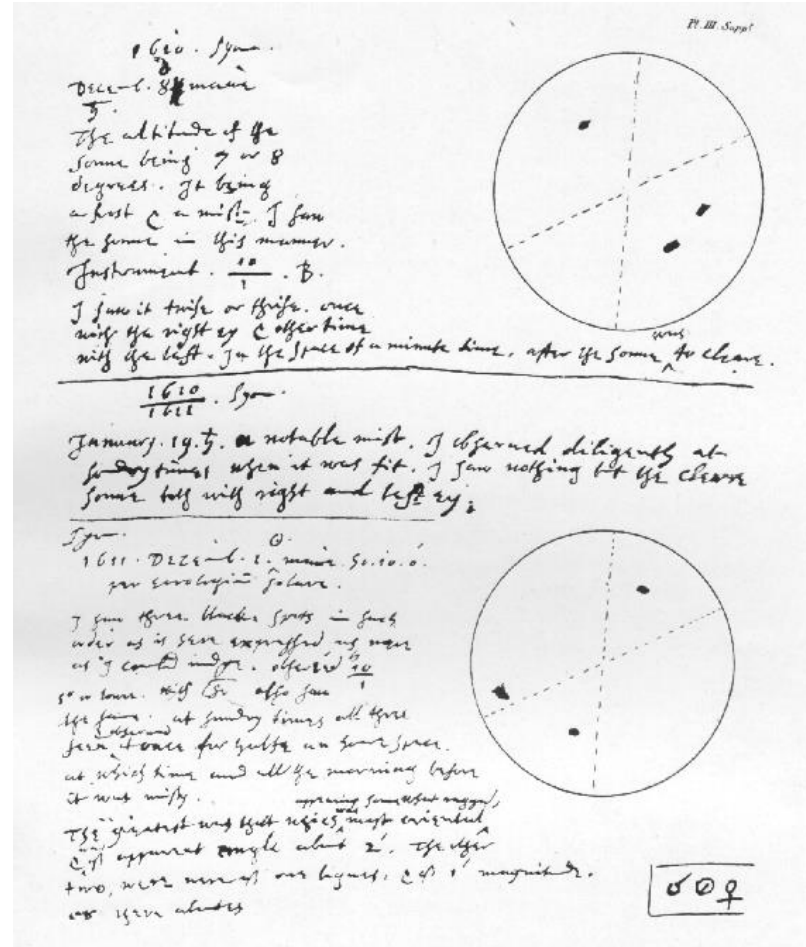 Pl. III. Suppl
1610. Syon.
Decemb. 8 mane
♄.
The altitude of the
sonne being 7 or 8
degrees. It being
a frost & a mist. I saw
the sonne in this manner.
Instrument. 10/1 . B.
I saw it twise or thrise. once
with the right ey & other time
with the left. In the space of a minute time, after the sonne was to cleare.
1610/1611 . Syon.
January. 19. ♄. a notable mist. I observed diligently at
sondry times when it was fit. I saw nothing but the cleare
sonne both with right and left ey.
Syon.
1611. Decemb. 1. ☉. mane. Ho.10.0.
per horologium solare.
I saw three blacke spots in such
order as is here expressed as nere
as I could judge. observed 10/1
also saw
the same. at sundry times all three
observed
seen at once for halfe an houre space.
at which time and all the morning before
it was misty.
appearing somewhat ragged,
The greatest was that which was most oriental
& of apparent angle about 2'. The other
two, were nere of one bignes, & of 1' magnitude.
♂ ☉ ♀